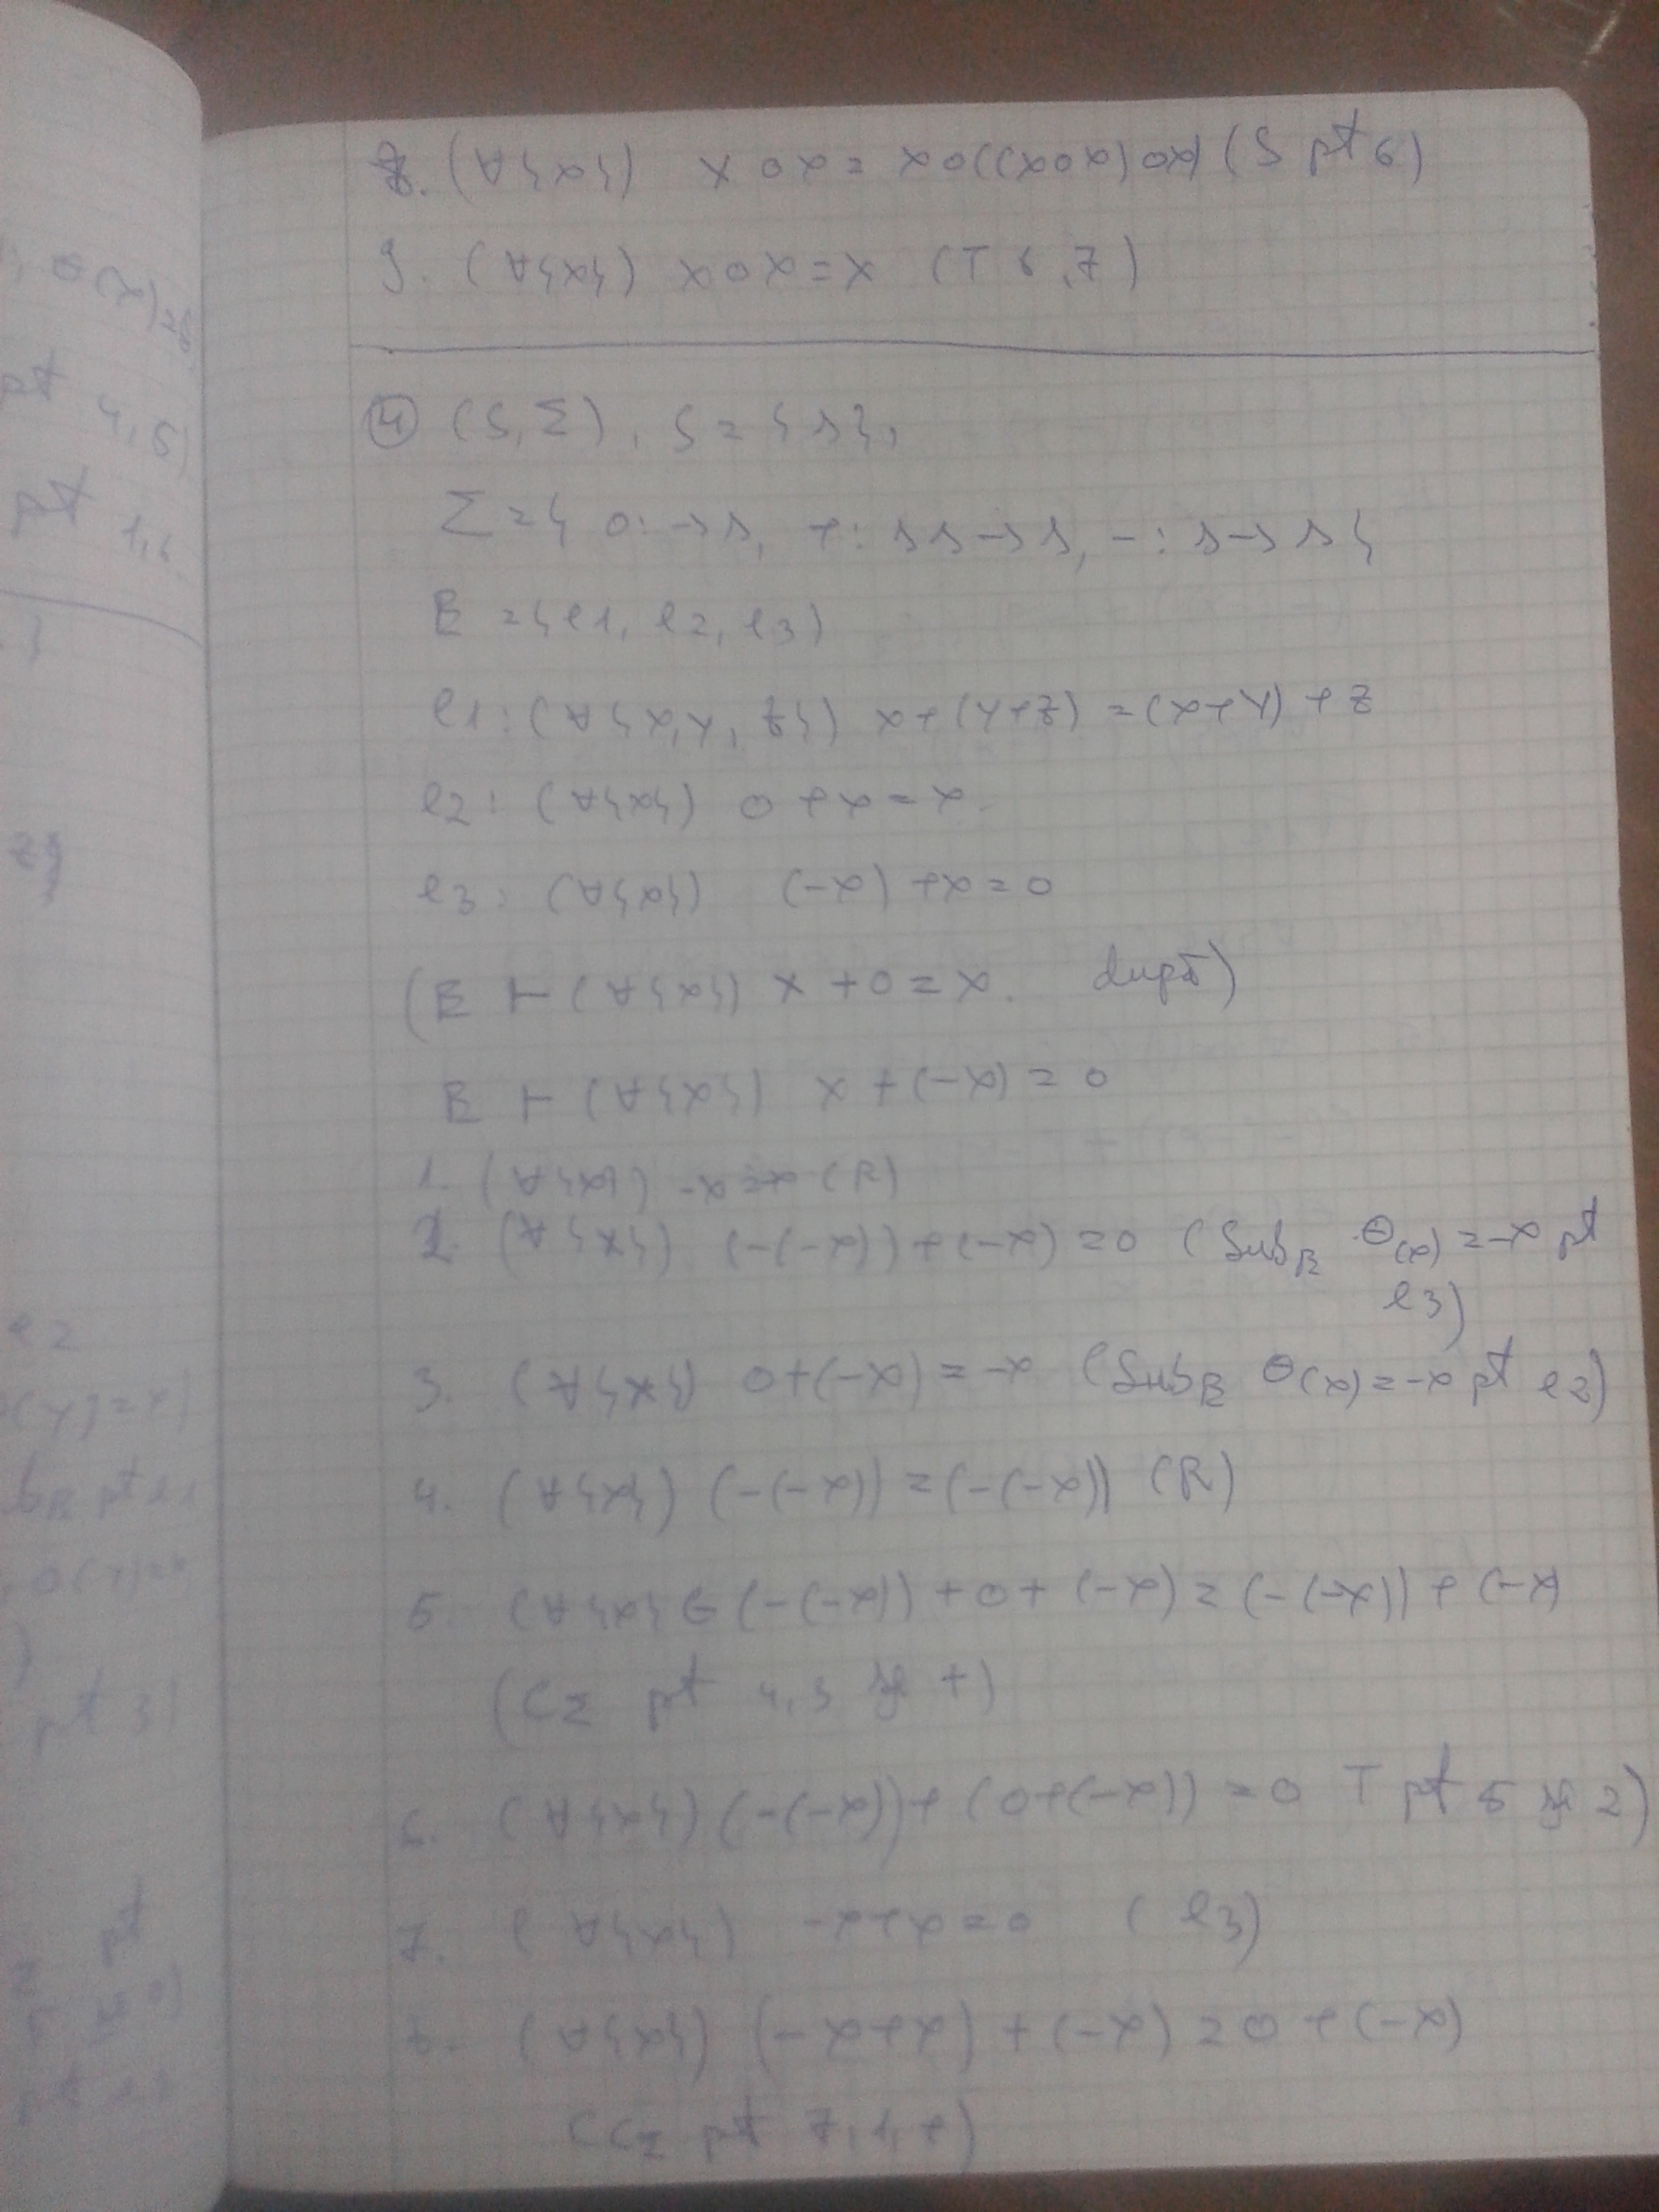 8. (∀{x}) x o x = x o((x o x) o x) (S pt 6)
9. (∀{x}) x o x = x (T 6,7)
④ (S, Σ), S = {s},
Σ = { 0: → s, +: ss → s, -: s → s }
E = {e1, e2, e3}
e1: (∀{x,y,z}) x+(y+z) = (x+y)+z
e2: (∀{x}) 0+x=x.
e3: (∀{x}) (-x)+x=0
(E ⊢ (∀{x}) x+0=x. după)
E ⊢ (∀{x}) x+(-x)=0
1. (∀{x}) -x=-x (R)
2. (∀{x}) (-(-x))+(-x)=0 (Sub_E θ(x)=-x pt
e3)
3. (∀{x}) 0+(-x)=-x (Sub_E θ(x)=-x pt e2)
4. (∀{x}) (-(-x))=(-(-x)) (R)
5. (∀{x} (-(-x))+0+(-x)=(-(-x))+(-x)
(CΣ pt 4,3 și +)
6. (∀{x}) (-(-x))+(0+(-x))=0 T pt 5 și 2)
7. (∀{x}) -x+x=0 (e3)
8. (∀{x}) (-x+x)+(-x)=0+(-x)
(CΣ pt 7,1,+)
θ(x)=
pt 4,5)
pt 1,
}
z}
e2
(y)=
pt
pt 3)
pt